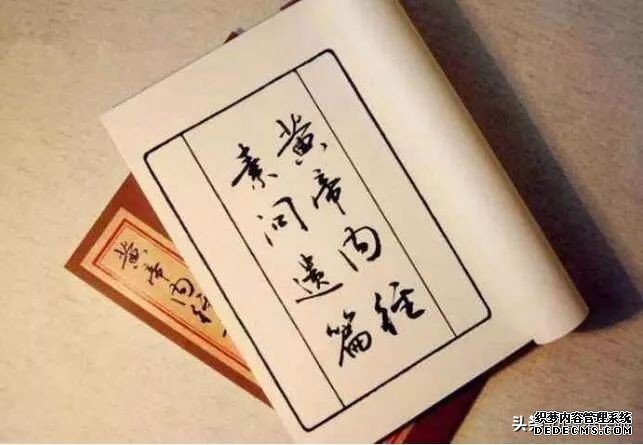 黄帝内经
素问遗篇
黄帝内经
头条
织梦内容管理系统
DEDECMS.COM